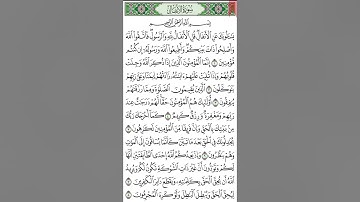 سورة الأنفال
بسم الله الرحمن الرحيم
يسألونك عن الأنفال قل الأنفال لله والرسول فاتقوا الله
وأصلحوا ذات بينكم وأطيعوا الله ورسوله إن كنتم
مؤمنين ١ إنما المؤمنون الذين إذا ذكر الله وجلت
قلوبهم وإذا تليت عليهم آياته زادتهم إيمانا وعلى ربهم
يتوكلون ٢ الذين يقيمون الصلاة ومما رزقناهم
ينفقون ٣ أولئك هم المؤمنون حقا لهم درجات عند
ربهم ومغفرة ورزق كريم ٤ كما أخرجك ربك
من بيتك بالحق وإن فريقا من المؤمنين لكارهون
٥ يجادلونك في الحق بعد ما تبين كأنما يساقون إلى الموت
وهم ينظرون ٦ وإذ يعدكم الله إحدى الطائفتين أنها
لكم وتودون أن غير ذات الشوكة تكون لكم ويريد
الله أن يحق الحق بكلماته ويقطع دابر الكافرين ٧
ليحق الحق ويبطل الباطل ولو كره المجرمون ٨